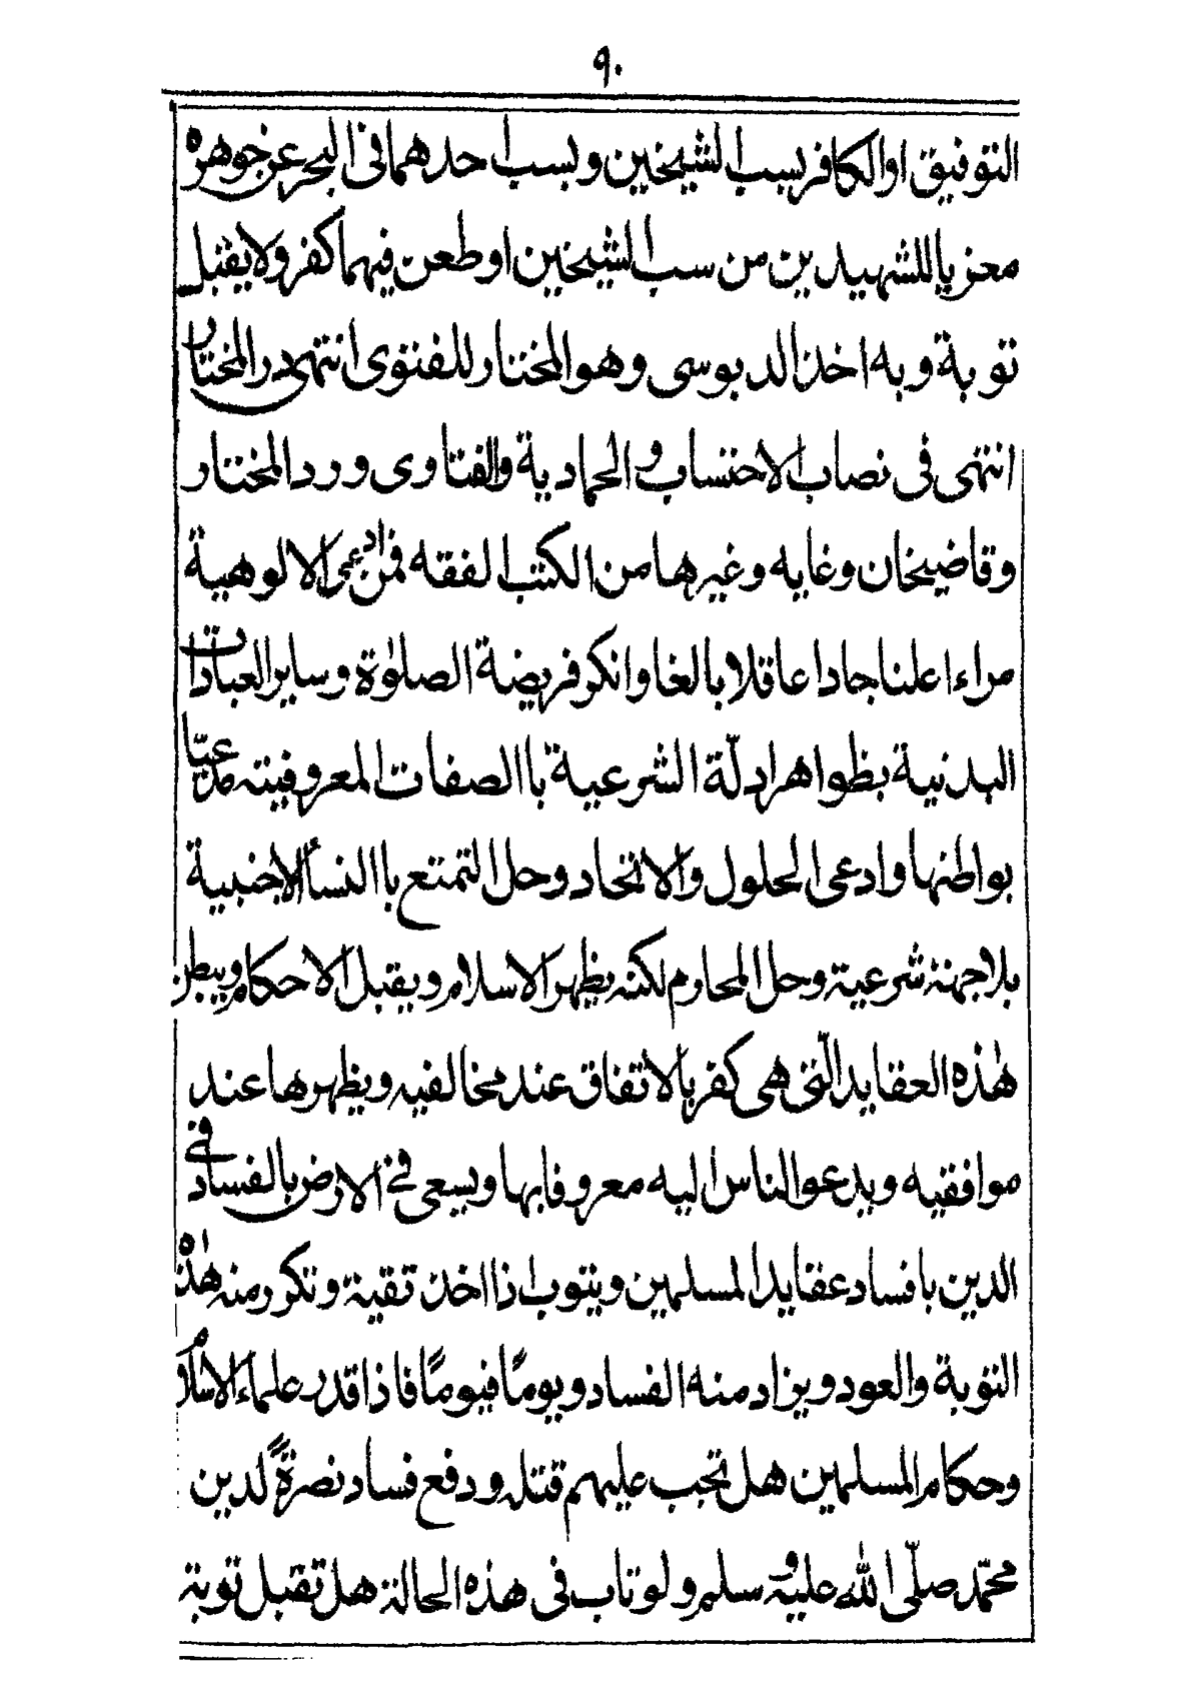 ٩٠
التوفيق اوالكافر بسب الشيخين وبسب احدهما فى البحر عن جوهره
معزيا للشهيد ين من سب الشيخين اوطعن فيهما كفر ولا يقبل
توبة وبه اخذ الد بوسى وهو المختار للفتوى انتهى در المختار
انتهى فى نصاب الاحتساب و الحمادية والفتاوى ورد المختار
وقاضيخان وغايه وغيرها من الكتب الفقه فمن ادعى الالوهية
مراءا علنا جادا عاقلا بالغا وانكر فريضة الصلوٰة وساير العبادات
البدنية بظواهر ادلّة الشرعية باالصفات المعروفيته مدعيّا
بواطنها وادعى الحلول والاتحاد وحل التمتع باالنسأ الاجنبية
بلا جهة شرعية وحل المحارم لكنه يظهر الاسلام ويقبل الاحكام ويبطن
هٰذه العقايد الّتى هى كفر بالاتفاق عند مخالفيه ويظهرها عند
موافقيه ويدعو الناس اليه معروفا بها ويسعى فى الارض بالفساد فى
الدين بافساد عقايد المسلمين ويتوب اذا اخذ تقية وتكرر منه هٰذه
التوبة والعود ويزاد منه الفساد ويومًا فيومًا فاذا قدر علماء الاسلام
وحكام المسلمين هل تجب عليهم قتله ودفع فساد نصرةً لدين
محمّد صلّى الله عليه و سلم ولو تاب فى هذه الحالة هل تقبل توبة